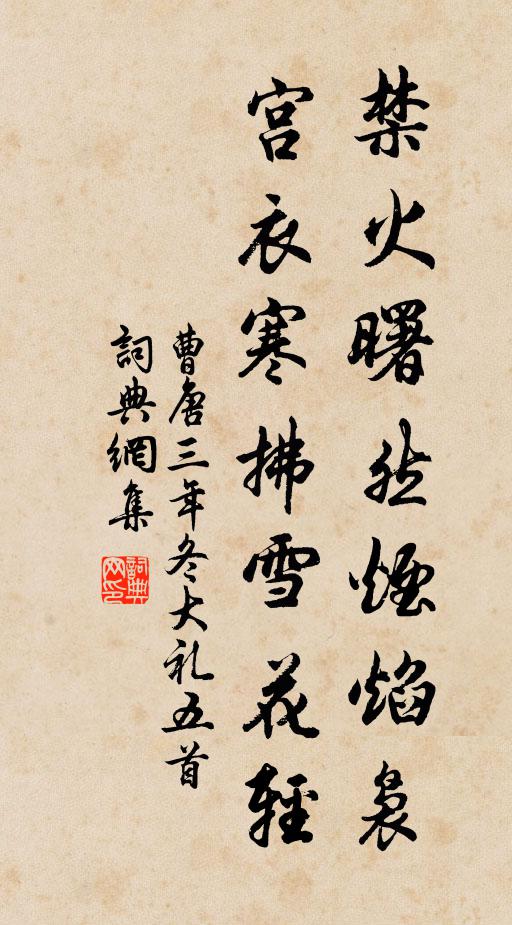 禁火曙然煙焰裊
宫衣寒拂雪花輕
曹唐三年冬大礼五首
詞典網集
詞典网印